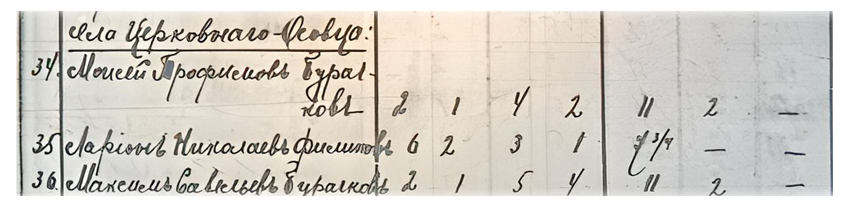 села Церковнаго-Осовца:
34. Моисей Трофимовъ Бурач-
ковъ 2 1 4 2 11 2 —
35 Ларіонъ Николаевъ Филиповъ 6 2 3 1 7 3/4 — —
36. Максимъ Савельевъ Бурачковъ 2 1 5 4 11 2 —